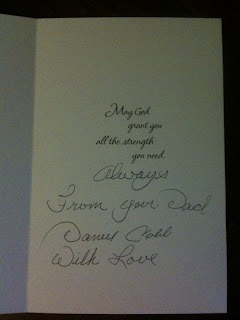 May God
grant you
all the strength
you need.
Always
From your Dad
Daniel Cobb
With Love